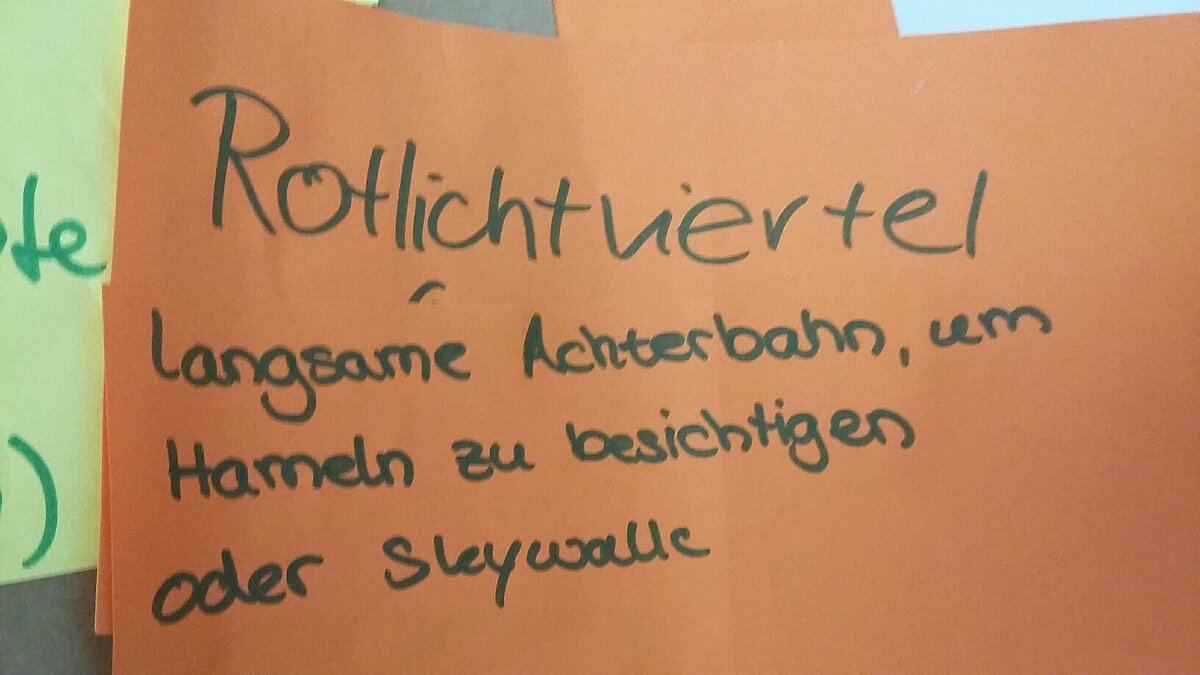 Rotlichtviertel
langsame Achterbahn, um
Hameln zu besichtigen
oder Skywalk
te
)